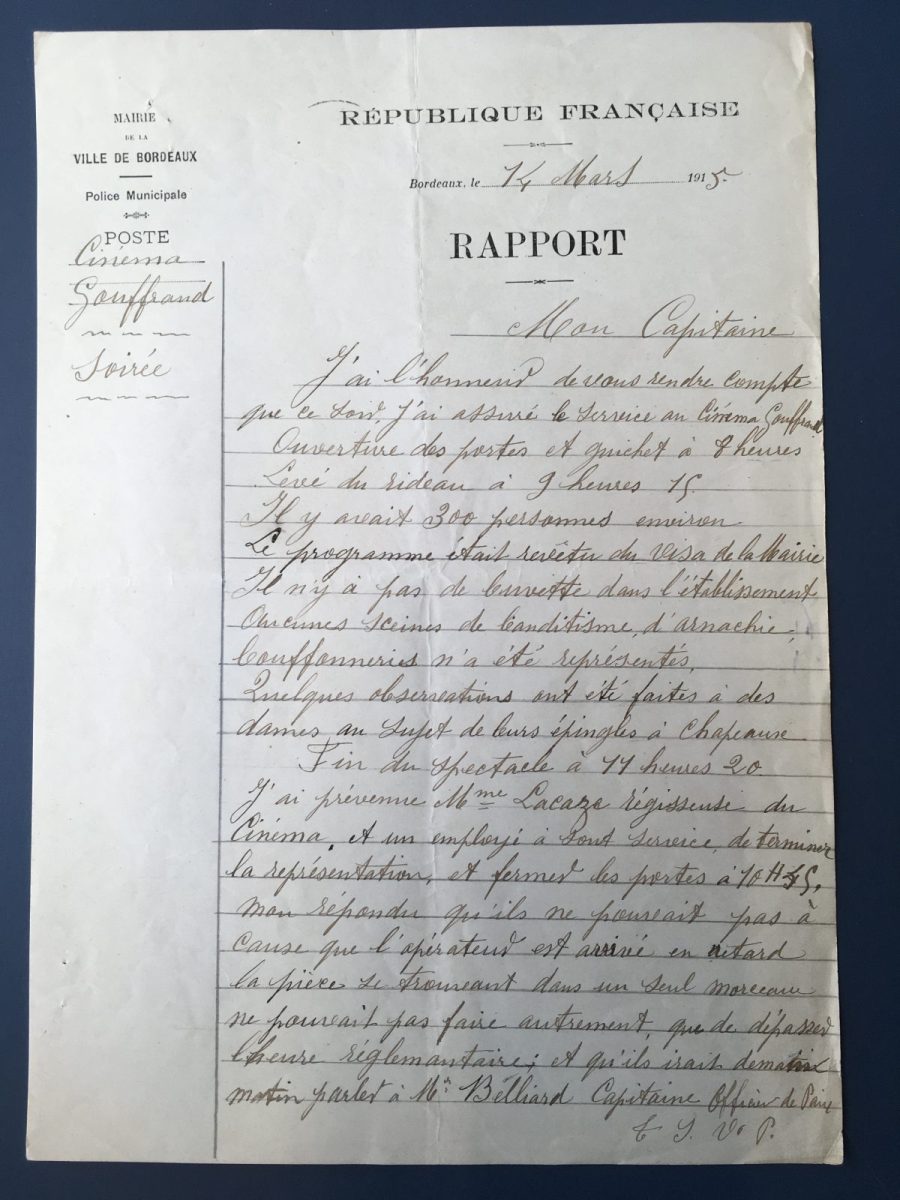 MAIRIE
DE LA
VILLE DE BORDEAUX
Police Municipale
POSTE
Cinéma
Gouffrand
Soirée
RÉPUBLIQUE FRANÇAISE
Bordeaux, le 14 Mars 1915.
RAPPORT
Mon Capitaine
J'ai l'honneur de vous rendre compte
que ce soir, j'ai assuré le service au Cinéma Gouffrand
Ouverture des portes et guichet à 8 heures
Levé du rideau à 9 heures 15.
Il y avait 300 personnes environ
Le programme était revêtu du visa de la Mairie
Il n'y à pas de buvette dans l'établissement
Aucunes sceines de banditisme, d'arnachie,
bouffonneries n'a été représentés,
Quelques observations ont été faites à des
dames au sujet de leurs épingles à chapeaux
Fin du spectacle à 11 heures 20.
J'ai prévenue Mme Lacaze régisseuse du
Cinéma, et un employé à sont service, de terminer
la représentation, et fermer les portes à 10 H 45,
mon répondu qu'ils ne pouvait pas à
cause que l'opérateur est arrivé en retard
la pièce se trouvant dans un seul morceau
ne pouvait pas faire autrement que de dépasser
l'heure réglemantaire; et qu'ils irait demain
matin parler à Mr Belliard Capitaine Officier de Paix
T. S. V. P.